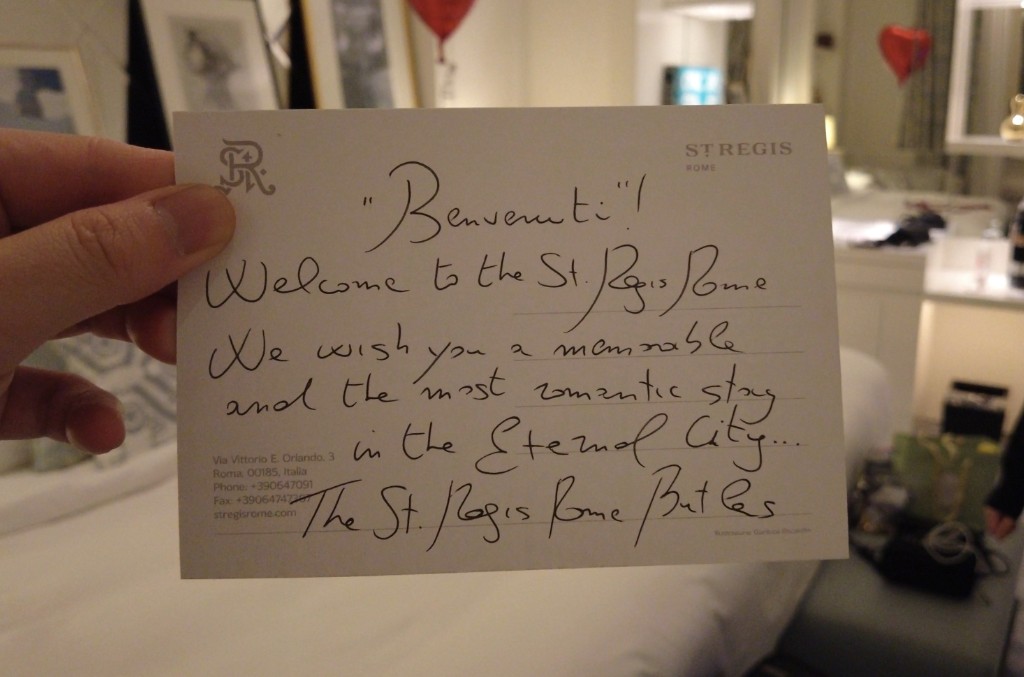 ST REGIS
ROME
"Benvenuti"!
Welcome to the St. Regis Rome
We wish you a memorable
and the most romantic stay
in the Eternal City...
Via Vittorio E. Orlando, 3
Roma, 00185, Italia
Phone: +390647091
Fax:
stregisrome.com
The St. Regis Rome Butlers